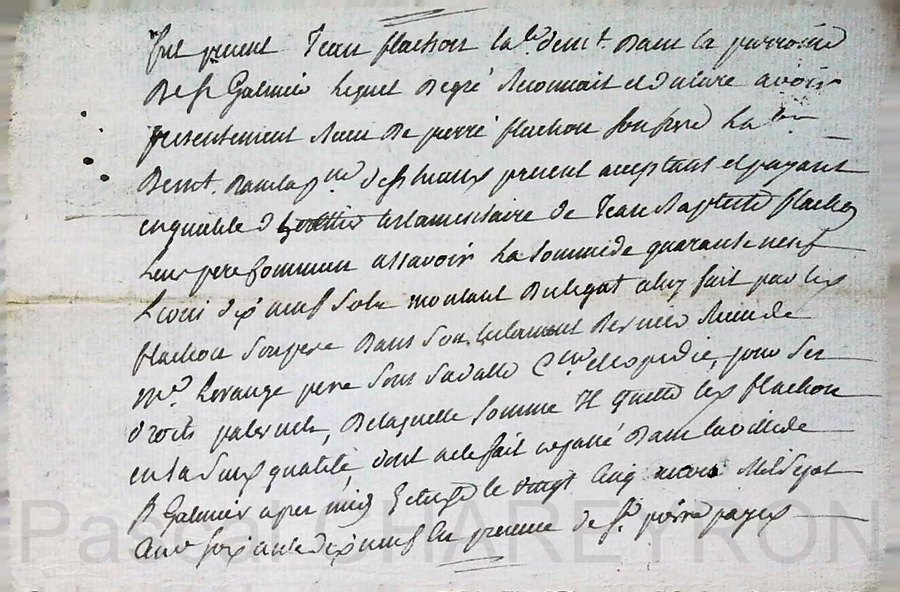 fut present Jean flachon lab.r dem.t Dans la parroisse
De s.t Galmier lequel Degré Reconnoit et declare avoir
presentement Receu De pierre flachon son frere lab.r
Dem.t Dans la p.sse de st present acceptant et payant
en qualité d heritier testamentaire de Jean Baptiste flachon
Leur pere Commun assavoir La somme de quarante neuf
Livres dix neuf sols montant Du legat a luy fait par led.
flachon son pere Dans son testament Dernier Receu de
m.e pere sous sa datte C.lle et expedie, pour ses
Droits paternels, De laquelle somme Il quitte led. flachon
en sa susd. qualité, dont acte fait et passé Dans la ville de
st Galmier apres midy Le vingt Cinq mars Mil Sept
Cent soix ante dix neuf En presence de s.r pierre payet
Pascal CHAREYRON